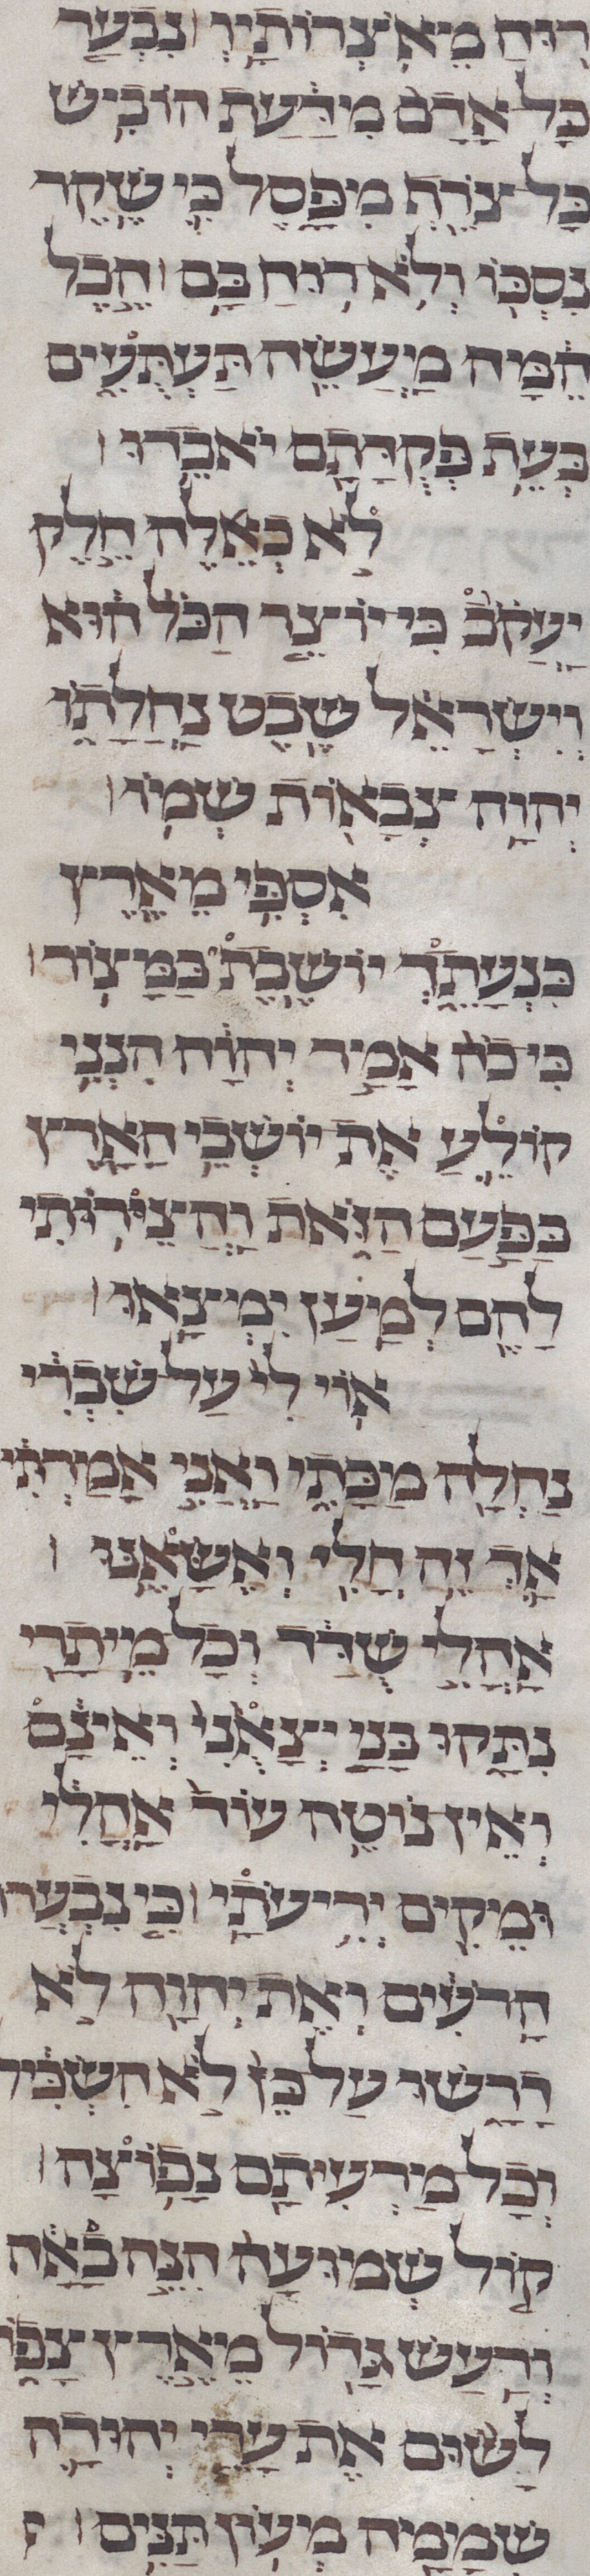 רוח מאצרותיו נבער
כל אדם מדעת הוביש
כל צרף מפסל כי שקר
נסכו ולא רוח בם הבל
המה מעשה תעתעים
בעת פקדתם יאבדו
לא כאלה חלק
יעקב כי יוצר הכל הוא
וישראל שבט נחלתו
יהוה צבאות שמו
אספי מארץ
כנעתך יושבת במצור
כי כה אמר יהוה הנני
קולע את יושבי הארץ
בפעם הזאת והצירותי
להם למען ימצאו
אוי לי על שברי
נחלה מכתי ואני אמרתי
אך זה חלי ואשאנו
אהלי שדד וכל מיתרי
נתקו בני יצאני ואינם
ואין נוטה עוד אהלי
ומקים יריעתי כי נבערו
הרעים ואת יהוה לא
דרשו על כן לא השכיל
וכל מרעיתם נפוצה
קול שמועה הנה באה
ורעש גדול מארץ צפו
לשום את ערי יהודה
שממה מעון תנים